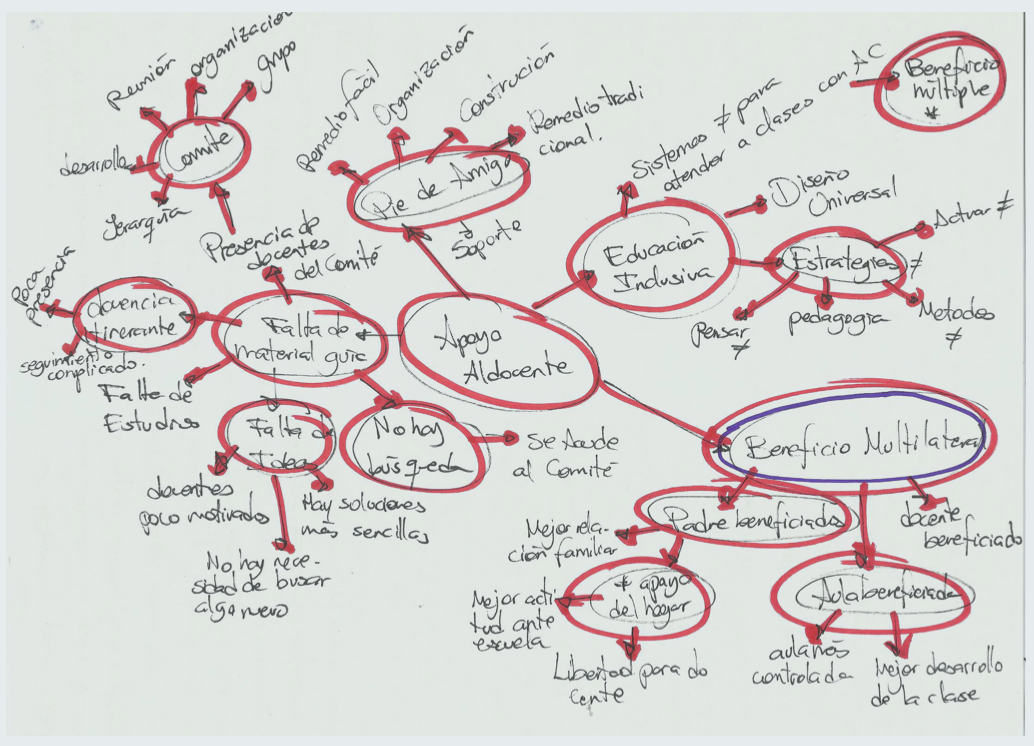 Reunión
organización
grupo
desarrollo
Comite
Jerarquía
Remedio fácil
Organización
Construción
Remedio tradi
cional.
Pie de Amigo
Soporte
Sistemas ≠ para
atender a clases con AC
Beneficio
múltiple
*
Diseño
Universal
Educación
Inclusiva
Estrategias ≠
Actuar ≠
Metodos
≠
pedagogía
Pensar
≠
Presencia de
docentes
del Comité
Poca
presencia
docencia
itinerante
seguimiento
complicado.
Falta de
material guía
Apoyo
Al docente
Falta de
Estudios
Falta de
Ideas
No hay
búsqueda
Se Acude
al Comité
docentes
poco motivados
Hay soluciones
más sencillas
No hay nece-
sidad de buscar
algo nuevo
Beneficio Multilateral
Padre beneficiados
docente
beneficiado
Mejor rela-
ción familiar
* apoyo
del hogar
Mejor acti
tud ante
escuela
Libertad para do
cente
Aula beneficiada
aula más
controlada
Mejor desarrollo
de la clase